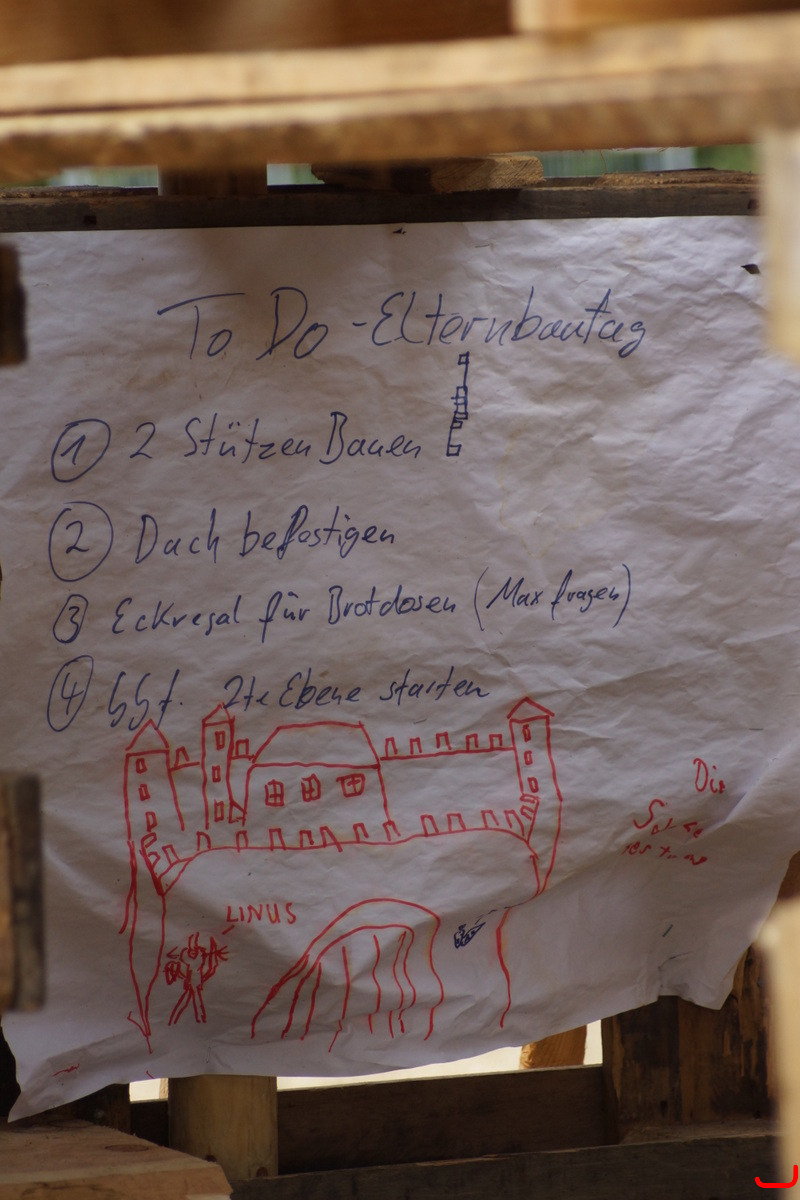 To Do - Elternbautag
① 2 Stützen Bauen
② Dach befestigen
③ Eckregal für Brotdosen (Max fragen)
④ ggf. 2te Ebene starten
LINUS
Die